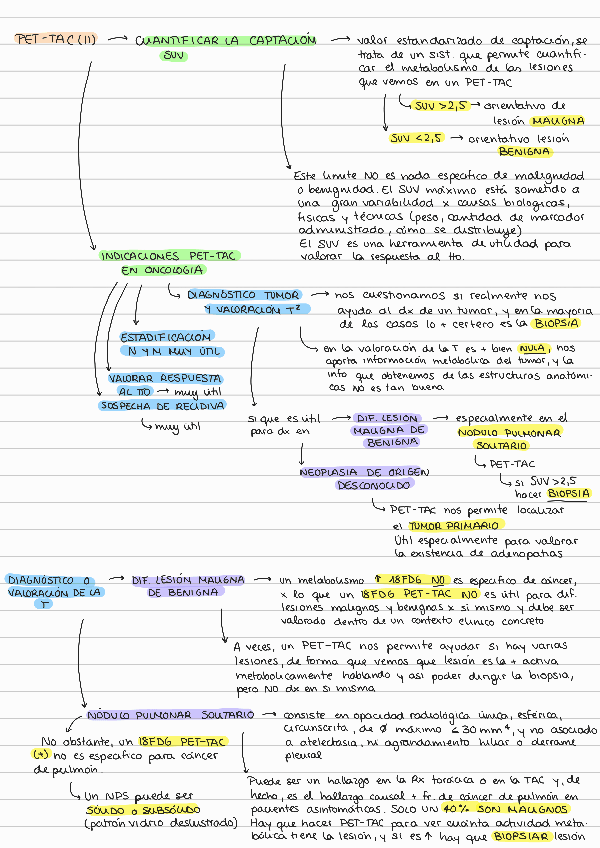 PET-TAC (II) → CUANTIFICAR LA CAPTACIÓN → valor estandarizado de captación, se
SUV
trata de un sist. que permite cuantifi-
car el metabolismo de las lesiones
que vemos en un PET-TAC
SUV > 2,5 → orientativo de
lesión MALIGNA
SUV < 2,5 → orientativo lesión
BENIGNA
Este límite NO es nada específico de malignidad
o benignidad. El SUV máximo está sometido a
una gran variabilidad x causas biológicas,
físicas y técnicas (peso, cantidad de marcador
administrado, cómo se distribuye)
El SUV es una herramienta de utilidad para
valorar la respuesta al tto.
INDICACIONES PET-TAC
EN ONCOLOGÍA
DIAGNÓSTICO TUMOR
Y VALORACIÓN T²
→ nos cuestionamos si realmente nos
ayuda al dx de un tumor, y en la mayoría
de los casos lo + certero es la BIOPSIA
en la valoración de la T es + bien NULA, nos
aporta información metabólica del tumor, y la
info que obtenemos de las estructuras anatómi-
cas NO es tan buena
ESTADIFICACIÓN
N Y M MUY ÚTIL
VALORAR RESPUESTA
AL TTO → muy útil
SOSPECHA DE RECIDIVA
muy útil
sí que es útil
para dx en
→ DIF. LESIÓN
MALIGNA DE
BENIGNA
→ especialmente en el
NÓDULO PULMONAR
SOLITARIO
PET-TAC
si SUV > 2,5
hacer BIOPSIA
NEOPLASIA DE ORIGEN
DESCONOCIDO
PET-TAC nos permite localizar
el TUMOR PRIMARIO
Útil especialmente para valorar
la existencia de adenopatías
DIAGNÓSTICO O
VALORACIÓN DE LA
T
→ DIF. LESIÓN MALIGNA
DE BENIGNA
→ un metabolismo ↑ 18FDG NO es específico de cáncer,
x lo que un 18FDG PET-TAC NO es útil para dif.
lesiones malignas y benignas x si mismo y debe ser
valorado dentro de un contexto clínico concreto
A veces, un PET-TAC nos permite ayudar si hay varias
lesiones, de forma que vemos que lesión es la + activa
metabólicamente hablando y así poder dirigir la biopsia,
pero NO dx en si misma
NÓDULO PULMONAR SOLITARIO → consiste en opacidad radiológica única, esférica,
circunscrita, de Ø máximo ≤ 30 mm, y no asociado
a atelectasia, ni agrandamiento hiliar o derrame
pleural
No obstante, un 18FDG PET-TAC
(+) no es específico para cáncer
de pulmón.
Un NPS puede ser
SÓLIDO o SUBSÓLIDO
(patrón vidrio deslustrado)
Puede ser un hallazgo en la Rx torácica o en la TAC y, de
hecho, es el hallazgo causal + fr. de cáncer de pulmón en
pacientes asintomáticos. SOLO UN 40% SON MALIGNOS
Hay que hacer PET-TAC para ver cuánta actividad meta-
bólica tiene la lesión, y si es ↑ hay que BIOPSIAR lesión